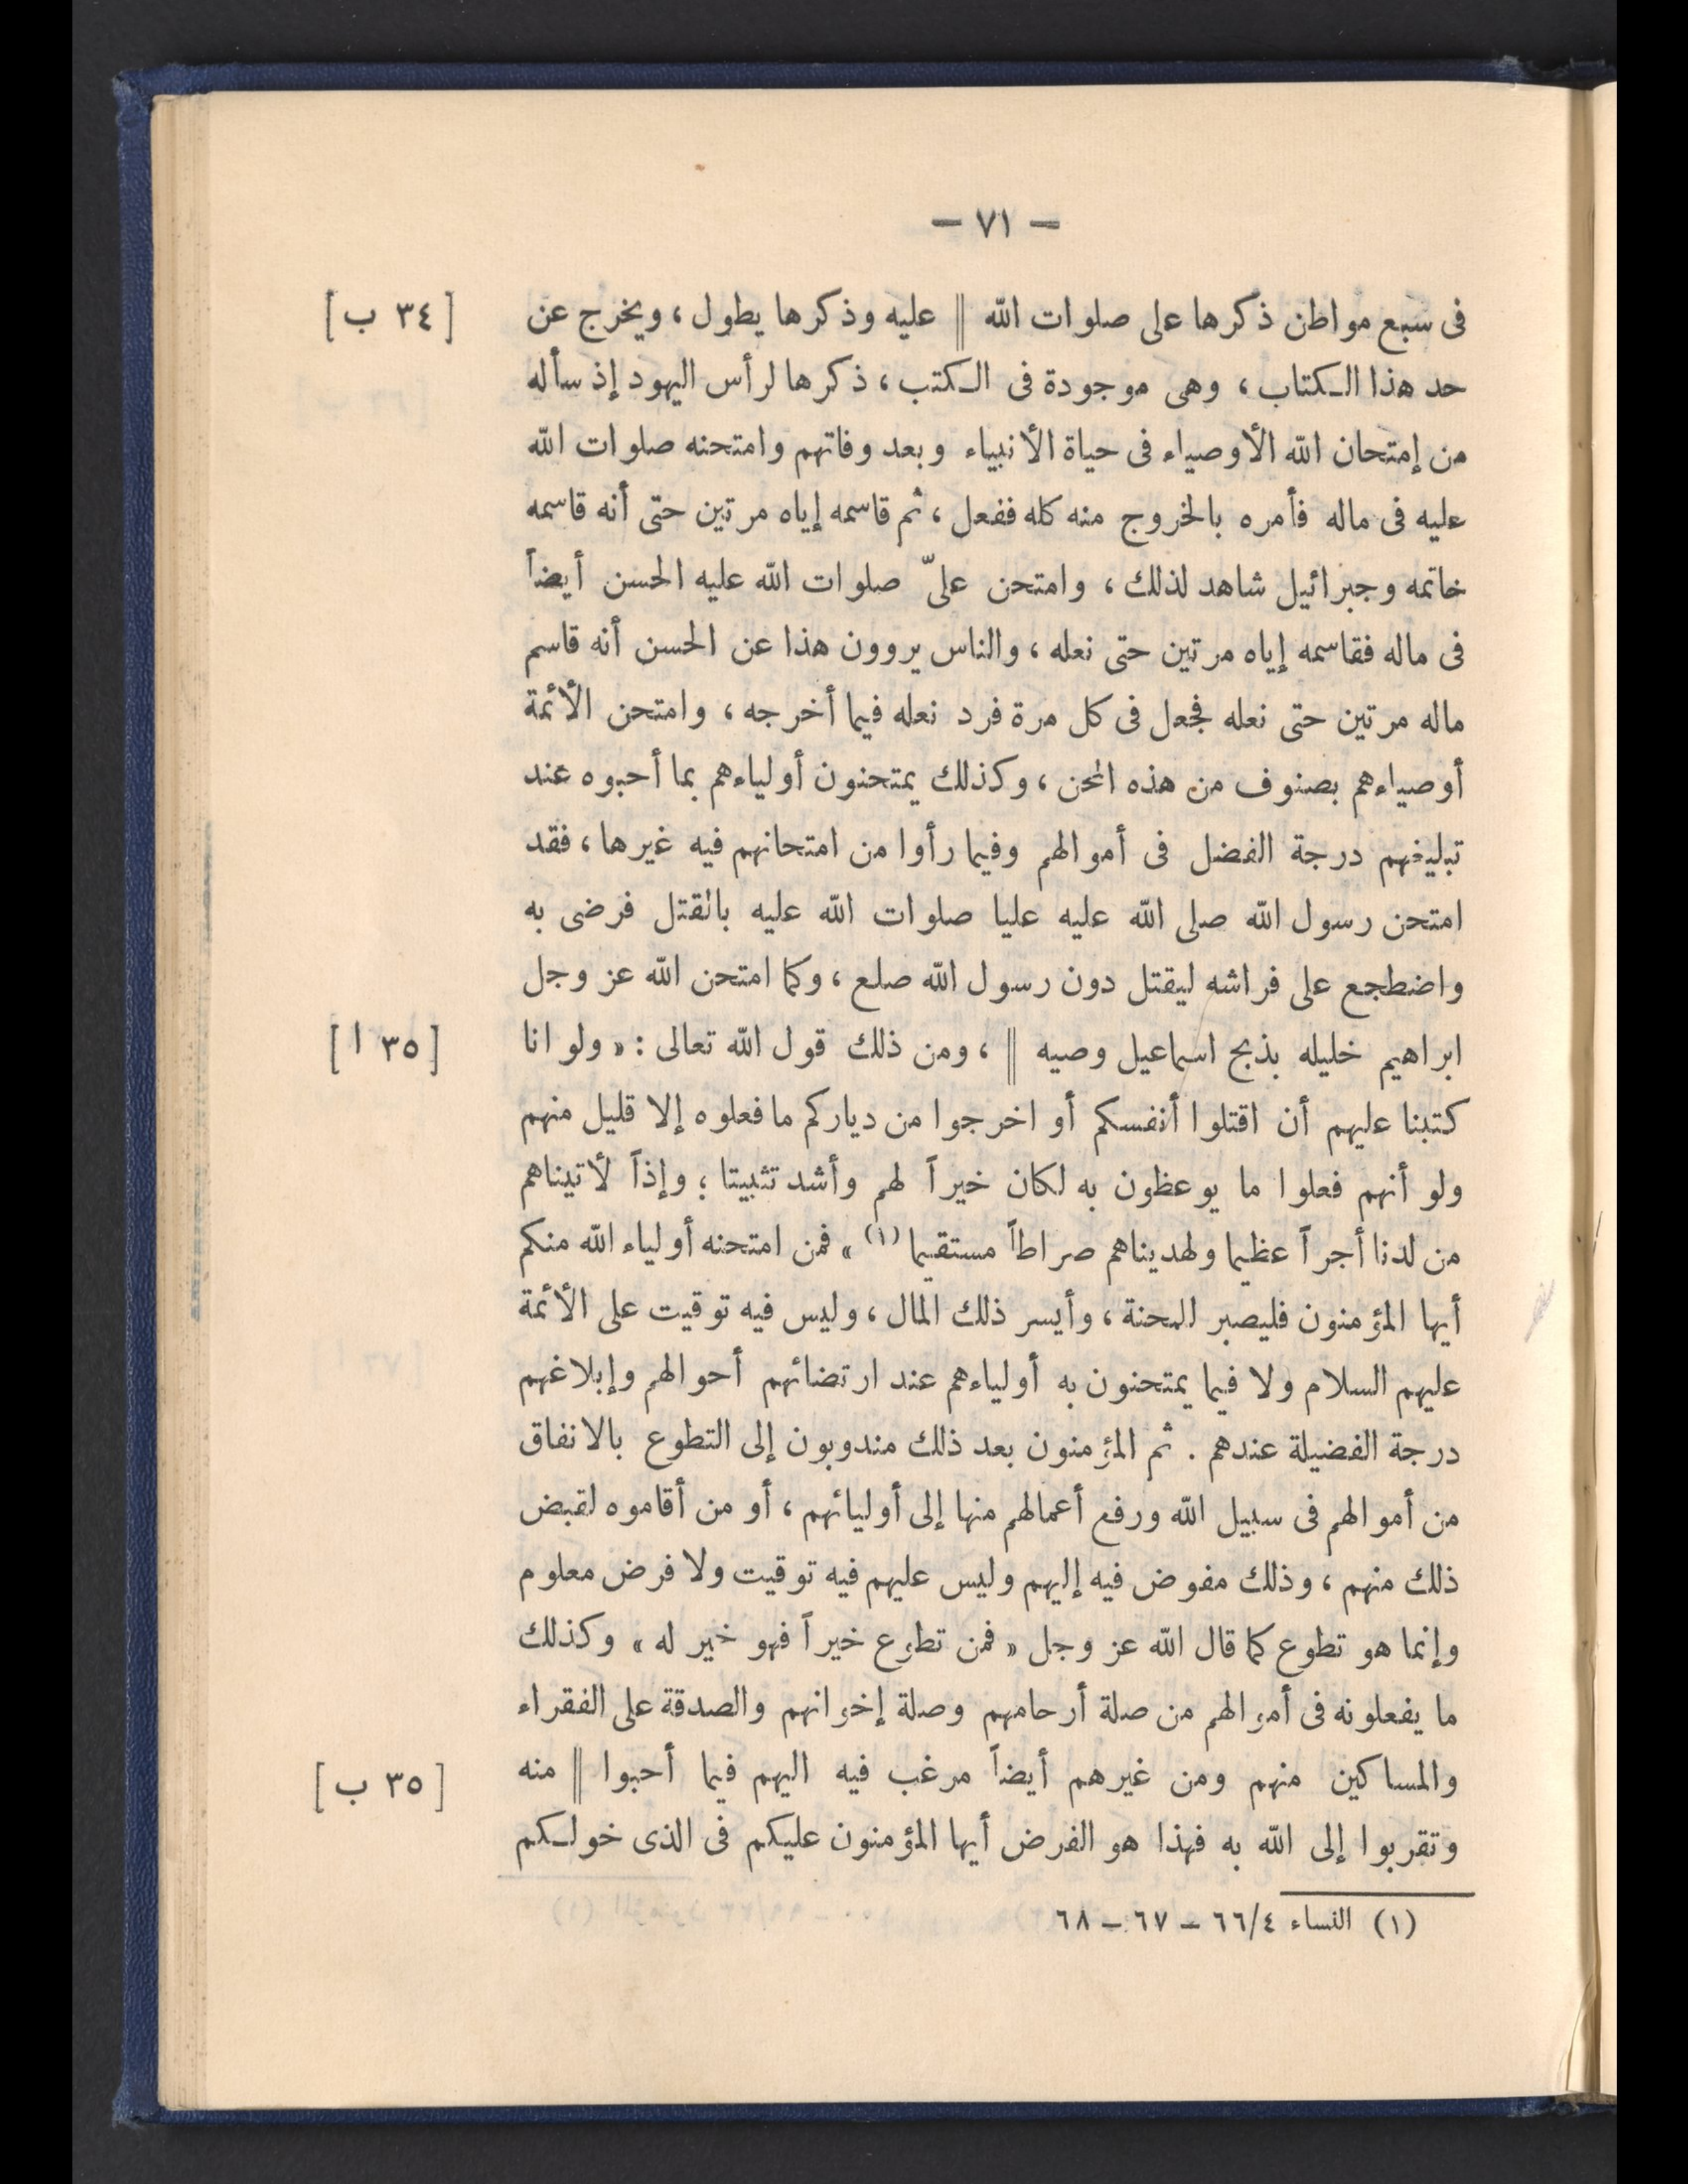 — ٧١ —
فى سبع مواطن ذكرها على صلوات الله || عليه وذكرها يطول ، ويخرج عن [ ٣٤ ب ]
حد هذا الكتاب ، وهى موجودة فى الكتب ، ذكرها لرأس اليهود إذ سأله
من إمتحان الله الأوصياء فى حياة الأنبياء وبعد وفاتهم وامتحنه صلوات الله
عليه فى ماله فأمره بالخروج منه كله ففعل ، ثم قاسمه إياه مرتين حتى أنه قاسمه
خاتمه وجبرائيل شاهد لذلك ، وامتحن علىّ صلوات الله عليه الحسن أيضاً
فى ماله فقاسمه إياه مرتين حتى نعله ، والناس يروون هذا عن الحسن أنه قاسم
ماله مرتين حتى نعله فجعل فى كل مرة فرد نعله فيما أخرجه ، وامتحن الأئمة
أوصياءهم بصنوف من هذه المحن ، وكذلك يمتحنون أولياءهم بما أحبوه عند
تبليغهم درجة الفضل فى أموالهم وفيما رأوا من امتحانهم فيه غيرها ، فقد
امتحن رسول الله صلى الله عليه عليا صلوات الله عليه بالقتل فرضى به
واضطجع على فراشه ليقتل دون رسول الله صلع ، وكما امتحن الله عز وجل
ابراهيم خليله بذبح اسماعيل وصيه || ، ومن ذلك قول الله تعالى : « ولو انا [ ٣٥ ا ]
كتبنا عليهم أن اقتلوا أنفسكم أو اخرجوا من دياركم ما فعلوه إلا قليل منهم
ولو أنهم فعلوا ما يوعظون به لكان خيراً لهم وأشد تثبيتا ؛ وإذاً لأتيناهم
من لدنا أجراً عظيما ولهديناهم صراطاً مستقيما (١) » فمن امتحنه أولياء الله منكم
أيها المؤمنون فليصبر للمحنة ، وأيسر ذلك المال ، وليس فيه توقيت على الأئمة
عليهم السلام ولا فيما يمتحنون به أولياءهم عند ارتضائهم أحوالهم وإبلاغهم
درجة الفضيلة عندهم . ثم المؤمنون بعد ذلك مندوبون إلى التطوع بالانفاق
من أموالهم فى سبيل الله ورفع أعمالهم منها إلى أوليائهم ، أو من أقاموه لقبض
ذلك منهم ، وذلك مفوض فيه إليهم وليس عليهم فيه توقيت ولا فرض معلوم
وإنما هو تطوع كما قال الله عز وجل « فمن تطوع خيراً فهو خير له » وكذلك
ما يفعلونه فى أموالهم من صلة أرحامهم وصلة إخوانهم والصدقة على الفقراء
والمساكين منهم ومن غيرهم أيضاً مرغب فيه اليهم فيما أحبوا || منه [ ٣٥ ب ]
وتقربوا إلى الله به فهذا هو الفرض أيها المؤمنون عليكم فى الذى خولكم
(١) النساء ٦٦/٤ – ٦٧ – ٦٨